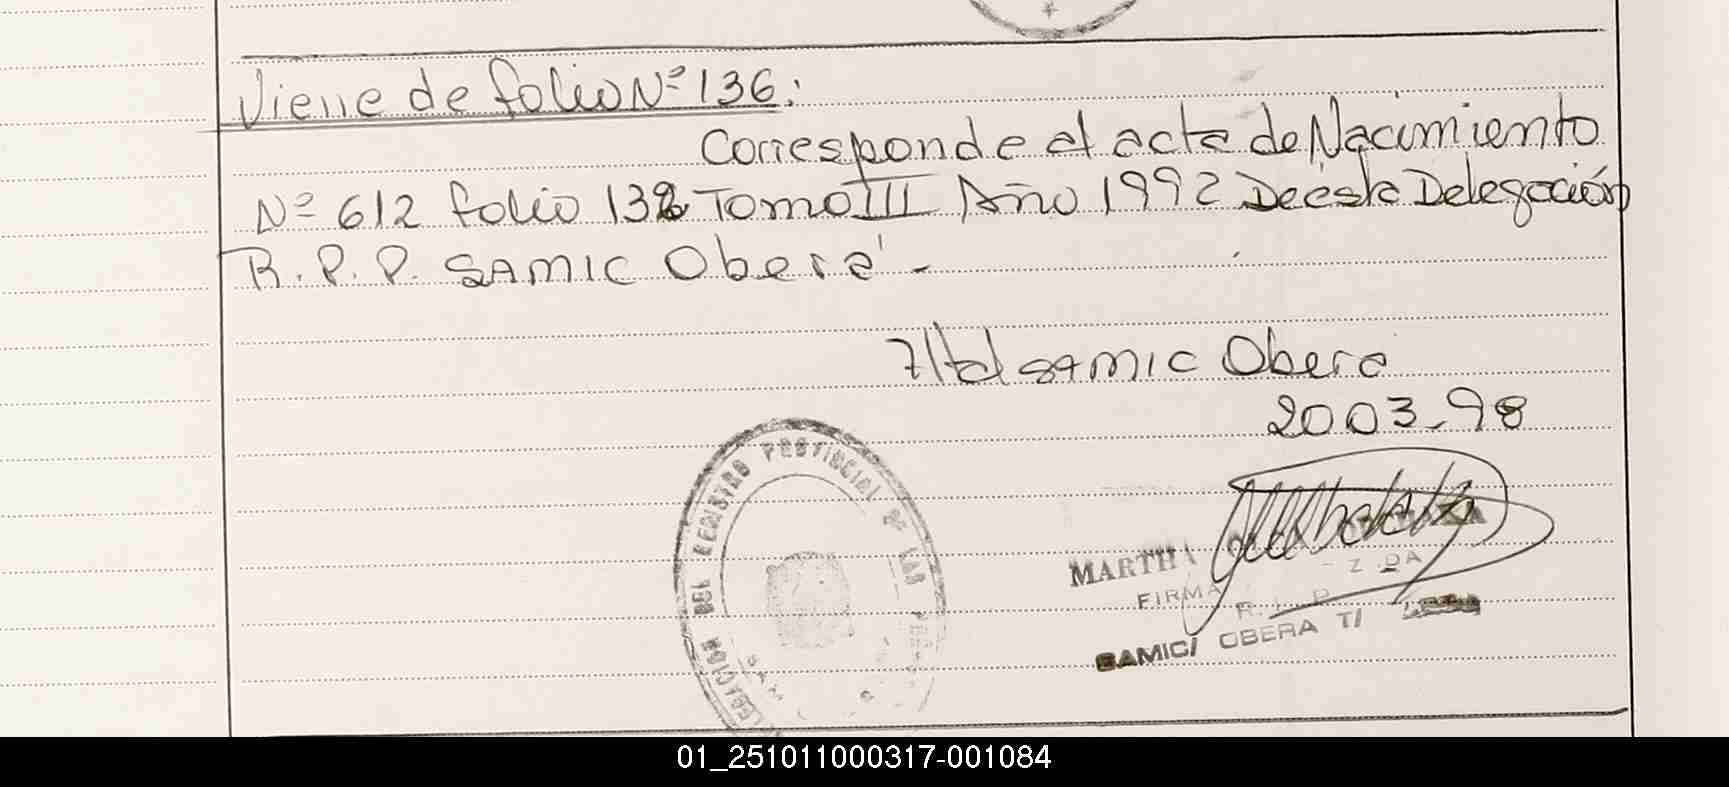 Viene de folio Nº 136:
Corresponde al acta de Nacimiento
Nº 612 folio 132 Tomo III Año 1992 De esta Delegación
R.P.P. SAMIC Oberá -
SAMIC Obera
2003-98
DEL REGISTRO PROVINCIAL DE LAS
MARTHA
FIRMA
SAMIC/ OBERA T/
01_251011000317-001084